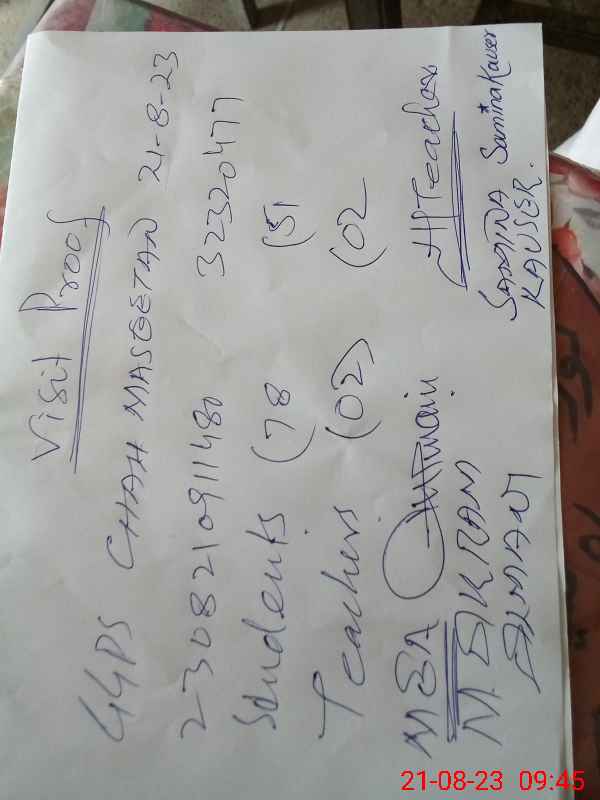 Visit Proof
GGPS CHAH MASEETAN 21-8-23
230821091148 32320477
Students (78 (51
Teachers (02) (02
MEA H/Teacher
M. IKRAM SAMINA Samina Kauser
KAUSER.
21-08-23 09:45